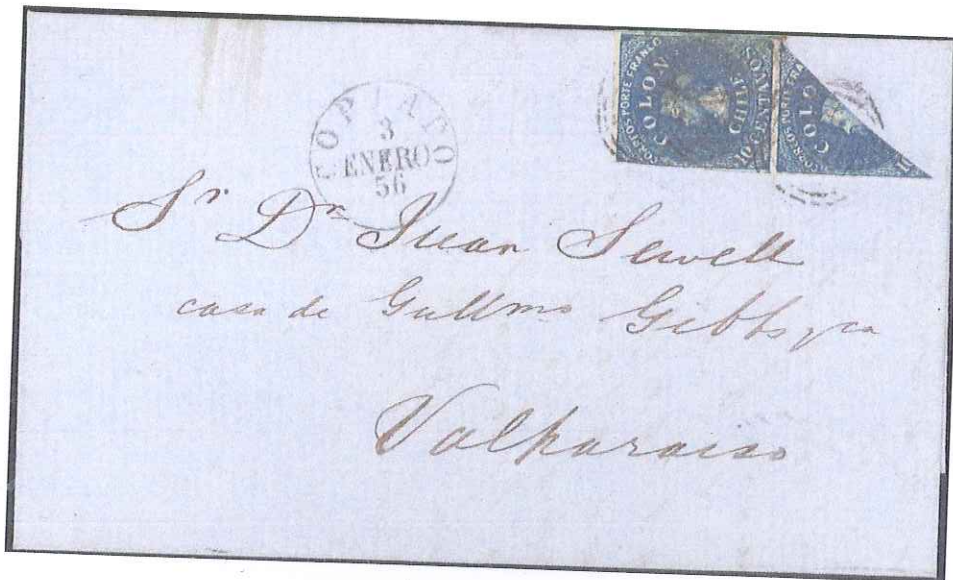 COPIAPO
3
ENERO
56
CORREOS PORTE FRANCO
COLON
CHILE
CENTAVOS
COLO
Sr Dn Juan Sewell
casa de Gullmo Gibbs y ca
Valparaiso